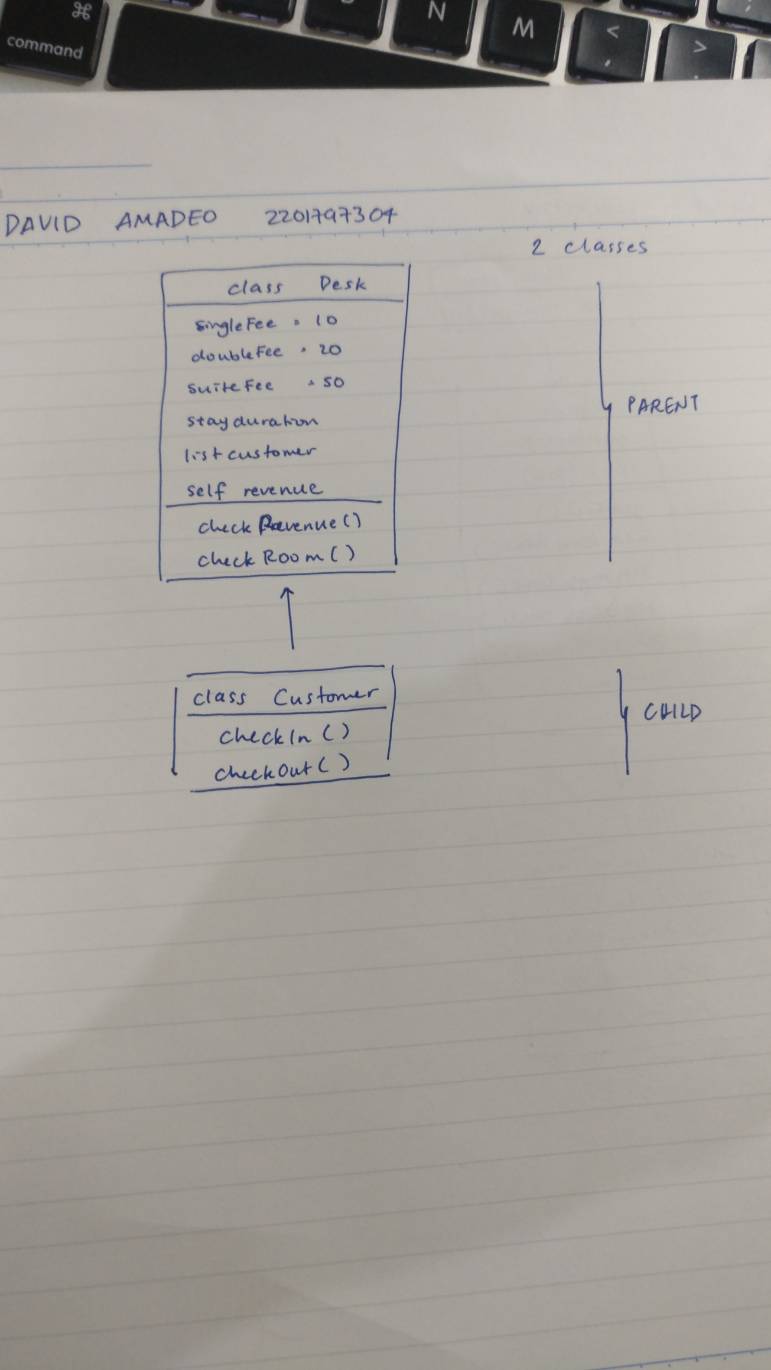 ⌘
command
N
M
<
,
>
.
DAVID AMADEO 2201797304
2 classes
class Desk
singleFee = 10
doubleFee = 20
suiteFee = 50
stayduration
listcustomer
self revenue
checkRevenue()
checkRoom()
PARENT
class Customer
checkIn()
checkOut()
CHILD